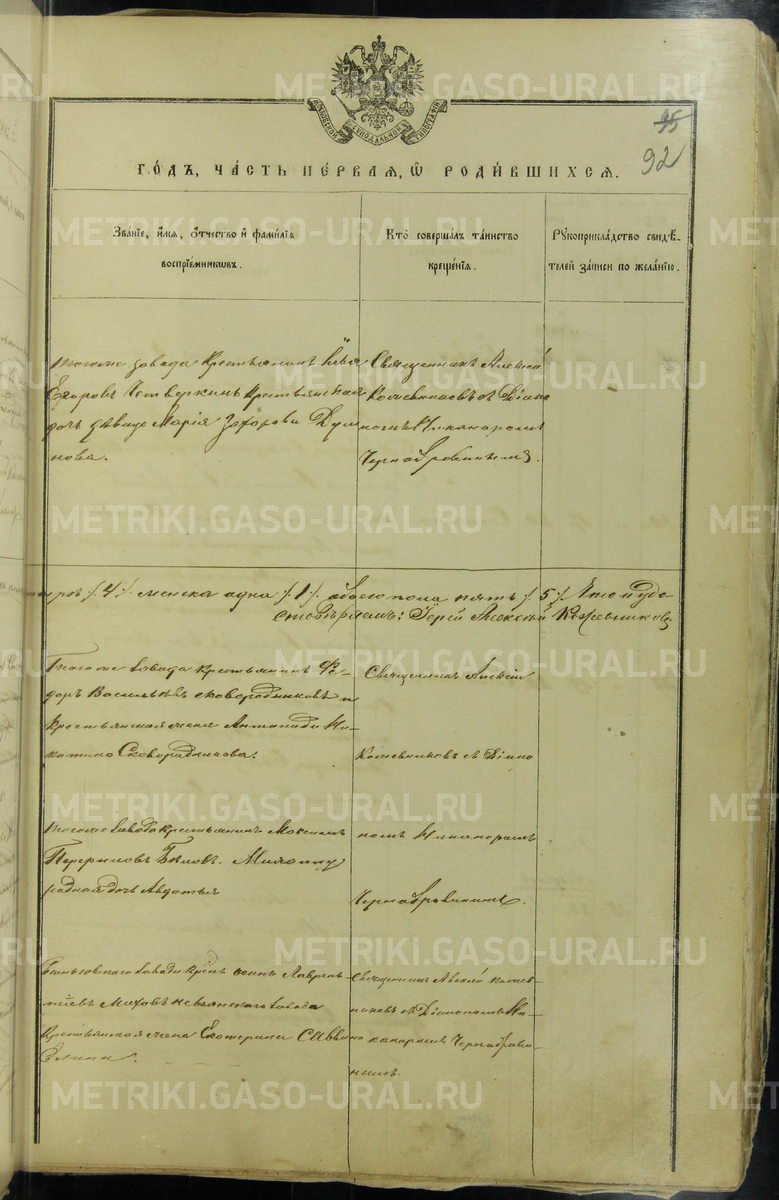 МОСКОВСКОЙ СѴНОДАЛЬНОЙ ТИПОГРАФІИ
95
92
ГОДЪ, ЧАСТЬ ПЕРВАЯ, Ѡ РОДИВШИХСЯ.
Званіе, имя, отчество и фамилія
воспріемниковъ.
Кто совершалъ таинство
крещенія.
Рукоприкладство свидѣ-
телей записи по желанію.
тогоже завода крестьянинъ Илья
Егоровъ Четверкинъ крестьянская
дочь дѣвица Марія Захарова
нова.
Священникъ Алексій
Кожевниковъ съ Діако
номъ Никаноромъ
Чернобровинымъ.
женска одна /1/. обоего пола пять /5/. Что и удо
стовѣряемъ: Іерей Алексій Кожевниковъ
Тогоже завода крестьянинъ Ѳе-
доръ Васильевъ Сковородниковъ и
крестьянская жена Антонида Ни-
китина Сковородникова.
Священникъ Алексій
Кожевниковъ съ Діако
номъ Никаноромъ
Чернобровинымъ.
тогоже завода крестьянинъ Максимъ
Бѣловъ.
родная дочь Авдотья
завода Лаврень-
тіевъ Маховъ Невьянскаго завода
крестьянская жена Екатерина Саввина
Священникъ Алексій Кожев-
никовъ съ Діакономъ Ни-
каноромъ Черноброви-
нымъ.
METRIKI.GASO-URAL.RU